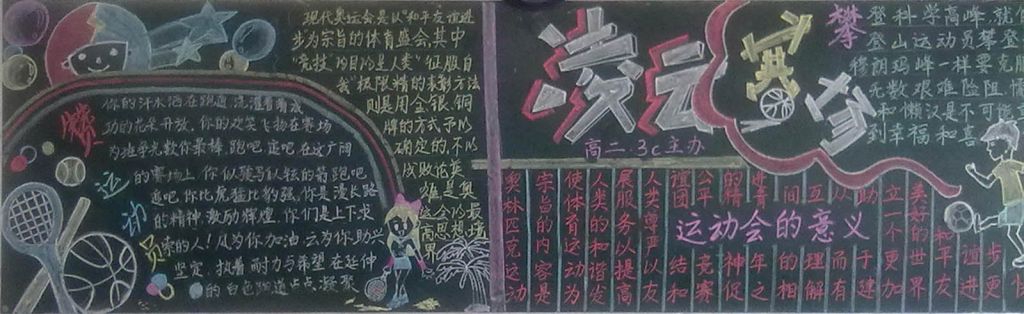 运动员
你的汗水洒在跑道,浇灌着成
功的花朵开放,你的欢笑飞扬在赛场
为班争光数你最棒,跑吧,追吧,在这广阔
的赛场上,你似骏马似轻的箭,跑吧
追吧,你比虎猛比豹强,你是漫长路
的精神激励辉煌,你们是上下求
索的人!风为你加油,云为你助兴
坚定、执着、耐力与希望在延伸
的白色跑道上点点凝聚
现代奥运会是以"和平、友谊、进
步"为宗旨的体育盛会,其中
"竞技"的目的是人类"征服自
我"极限精的表彰方法
则是用金银铜
牌的方式予以
确定的,不以
成败论英
雄是奥
运会的最
高思想境
界
凌云
高二.3c主办
攀登科学高峰,就
登山运动员攀登
穆朗玛峰一样,要克服
无数艰难险阻,懦
和懒汉是不可能
到幸福和喜
运动会的意义
奥林匹克运动
宗旨的内容是
使体育运动为
人类的和谐发
展服务以提高
人类尊严以友
谊团结和
公平竞赛
的精神促
青年之
间的相
互理解
从而有
助于建
立一个更加
美好的世界
和平友
谊进
步更